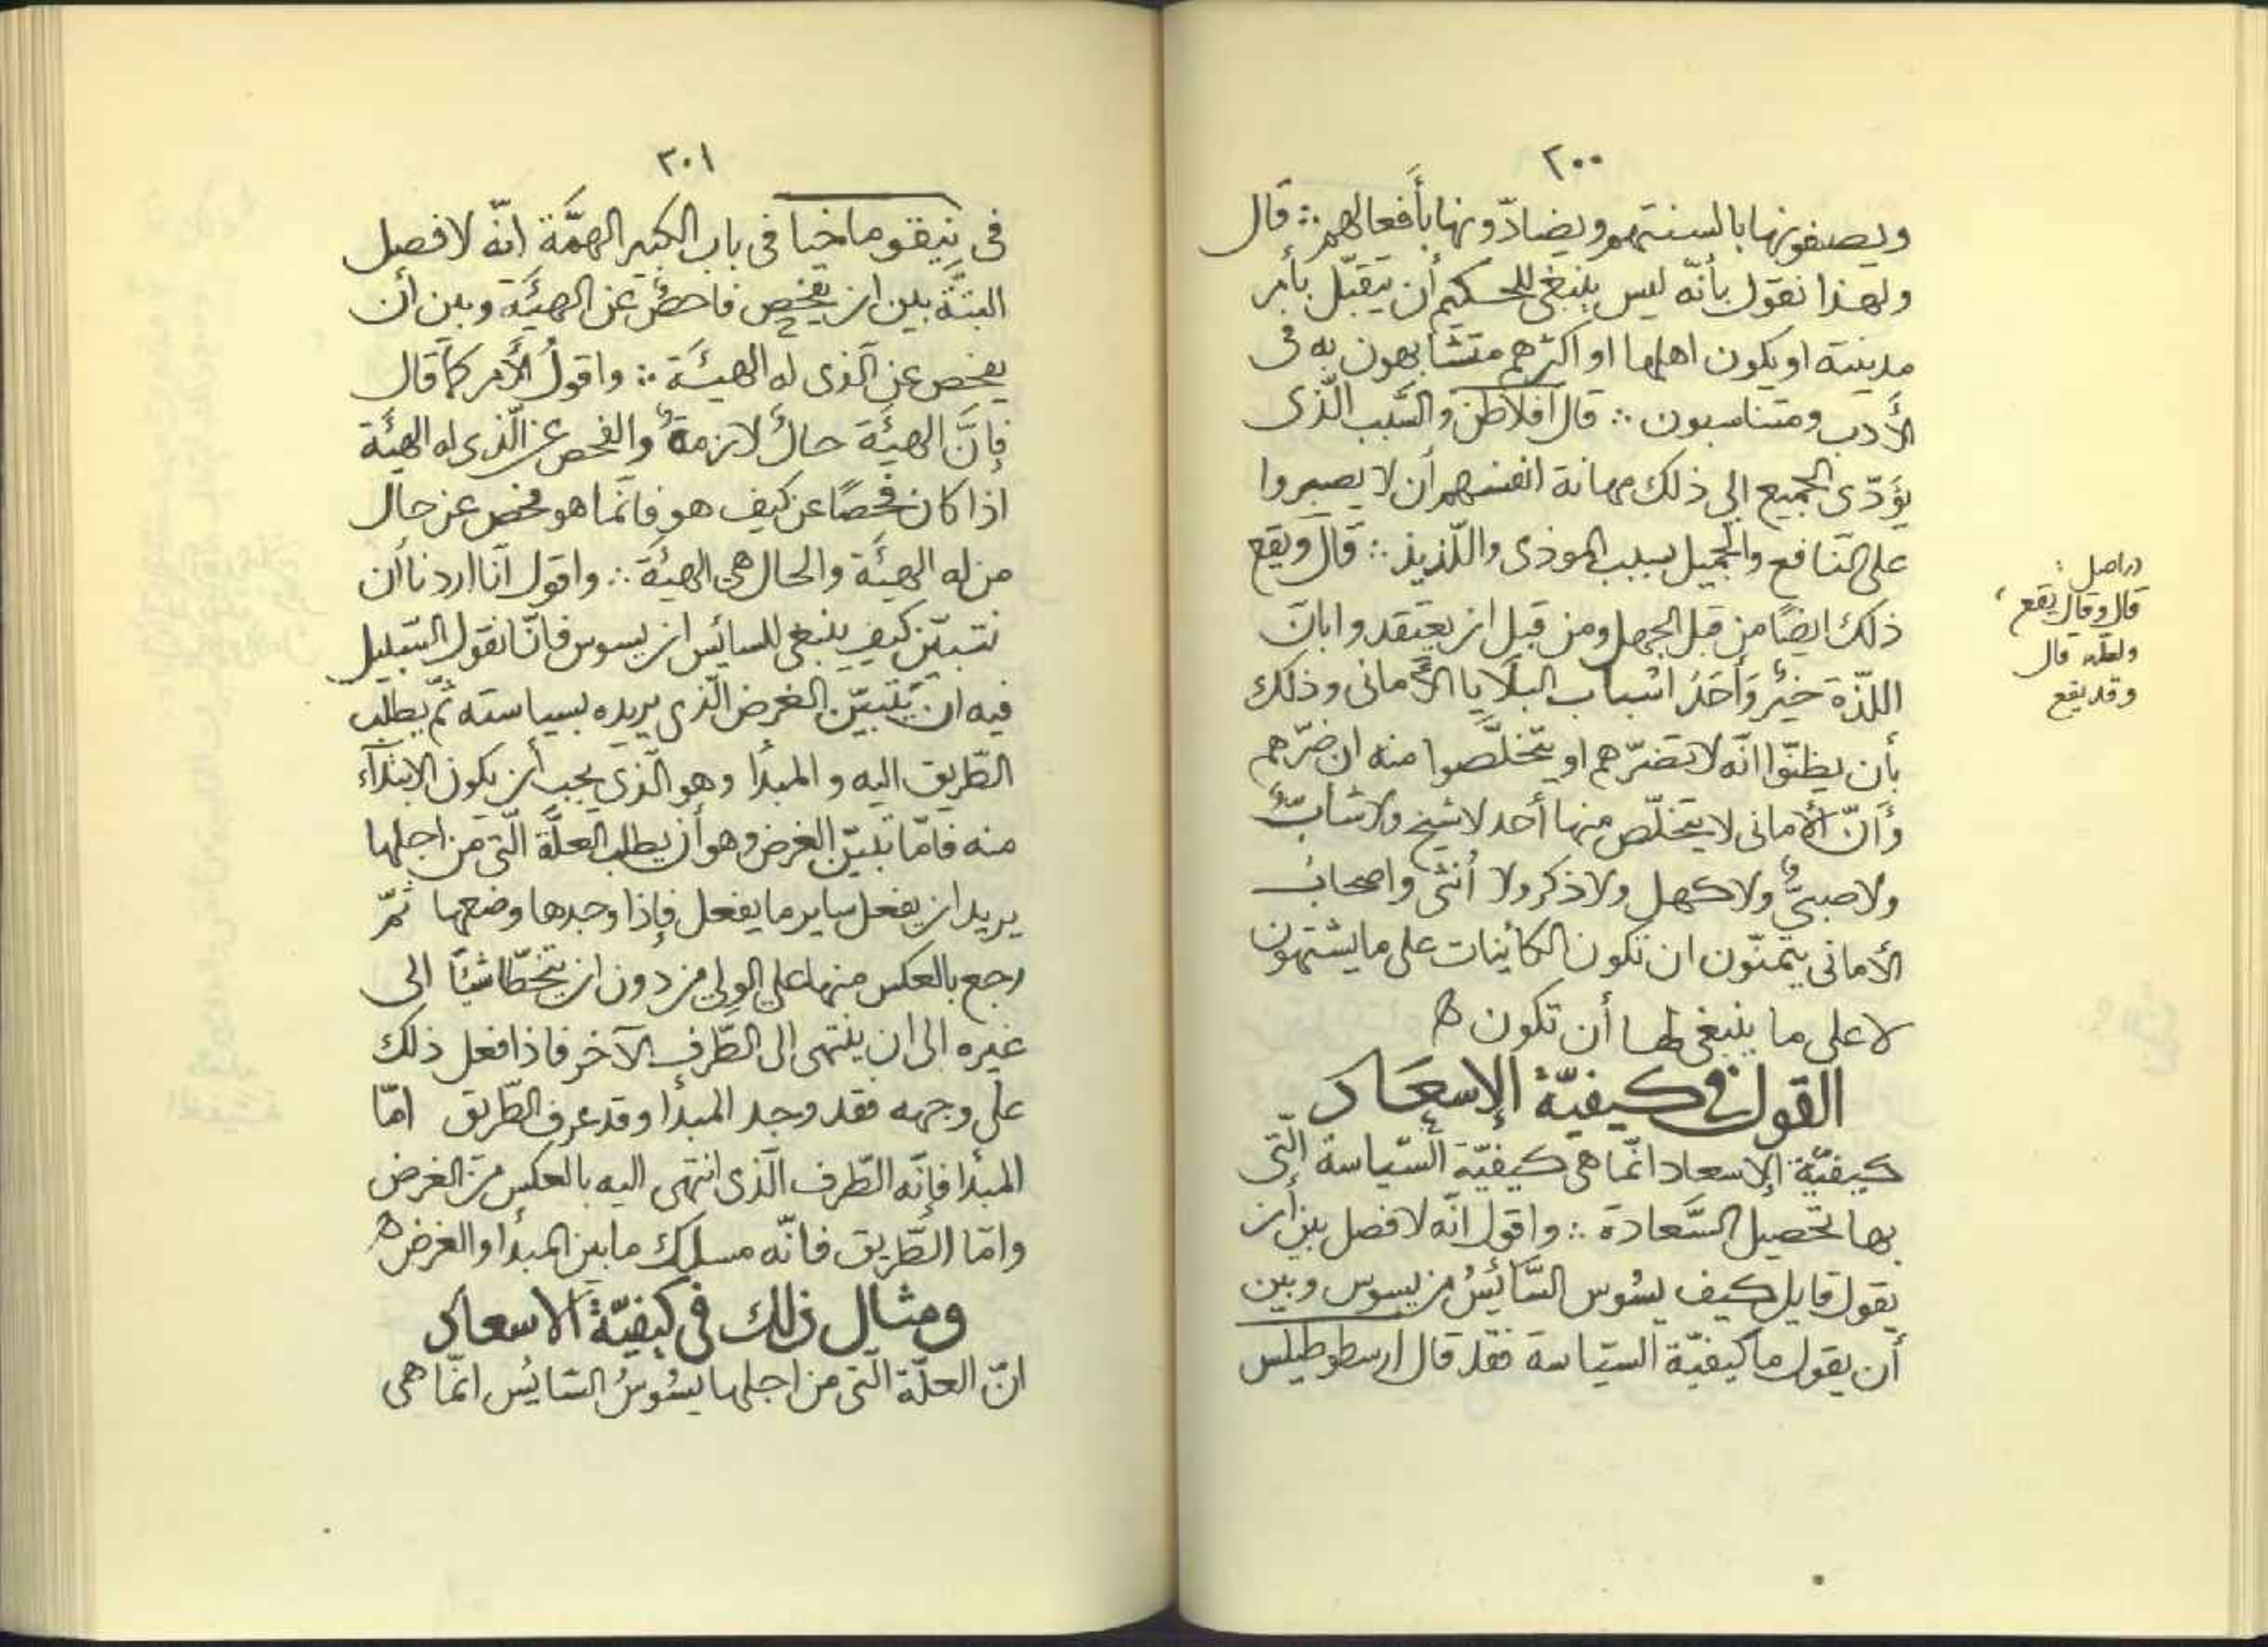 ٢٠٠
ويصفونها بالسنتهم ويضادّونها بأفعالهم ∴ قال
ولهذا نقول بأنّه ليس ينبغى للحكيم أن يتقبّل بأمر
مدينته او يكون اهلها او اكثرهم متشابهون به فى
الأدب ومتناسبون ∴ قال افلاطن والسّبب الّذى
يؤدّى الجميع الى ذلك مهانة انفسهم أن لا يصبروا
على النافع والجميل بسبب الموذى واللّذيذ ∴ قال ويقع
ذلك ايضًا من قبل الجهل ومن قبل ان يعتقدوا بانّ
اللذّة خيرٌ وأحدُ اسْباب البلَايا الأمانى وذلك
بأن يظنّوا انّه لا تضرّهم او يتخلّصوا منه ان ضرّهم
وأنّ الأمانى لا يتخلّص منها أحد لا شيخ ولا شابّ
ولا صبىّ ولا كهل ولا ذكر ولا أنثى واصحابُ
الأمانى يتمنّون ان تكون الكائينات على ما يشتهون
لا على ما ينبغى لها أن تكون ه
القول فى كيفيّة الإسعَاد
كيفيّة الإسعاد انّما هى كيفيّة السّياسة الّتى
بها تحصيل السَّعادة ∴ واقول انّه لا فصل بين أن
يقول قايل كيف يسُوس السَّائِسُ من يسوس وبين
أن يقول ما كيفيّة السيّاسة فقد قال ارسطوطيلس
دراصل :
قال وقال يقع ،
ولعلّه قال
وقد يقع
٣٠١
فى نيقوماخيا فى باب الكبير الهمَّة انّه لا فصل
البتّة بين ان يفحص فاحصٌ عن الهيئَة وبين أن
يفحص عن الّذى له الهيئَة ∴ واقولُ الأمر كما قال
فإنَّ الهيئَة حالٌ لازمةٌ والفحص عن الّذى له الهيئَة
اذا كان فحصًا عن كيف هو فانّما هو فحص عن حال
من له الهيئَة والحال هى الهيئة ∴ واقول انّا اردنا أن
نتبيّن كيف ينبغى للسائِس ان يسوس فانّا نقول السّبيل
فيه ان يتبيّن الغرض الّذى يريده بسياسته ثمّ يطلب
الطّريق اليه و المبدأ وهو الّذى يجب أن يكون الابتدآء
منه فامّا تبيّن الغرض وهو أن يطلب العلّة الّتى من اجلها
يريد ان يفعل ساير ما يفعل فإذا وجدها وضعها ثمّ
رجع بالعكس منها على الولى من دون ان يتخطّا شيئًا الى
غيره الى ان ينتهى الى الطّرف الآخر فاذا فعل ذلك
على وجهه فقد وجد المبدأ وقد عرف الطّريق امّا
المبدأ فإنّه الطّرف الّذى انتهى اليه بالعكس من الغرض
وامّا الطّريق فانّه مسلك ما بين المبدأ والغرض ه
ومثال ذلك فى كيفيّة الاسعاد
انّ العلّة الّتى من اجلها يسُوسُ السّائِس انّما هى